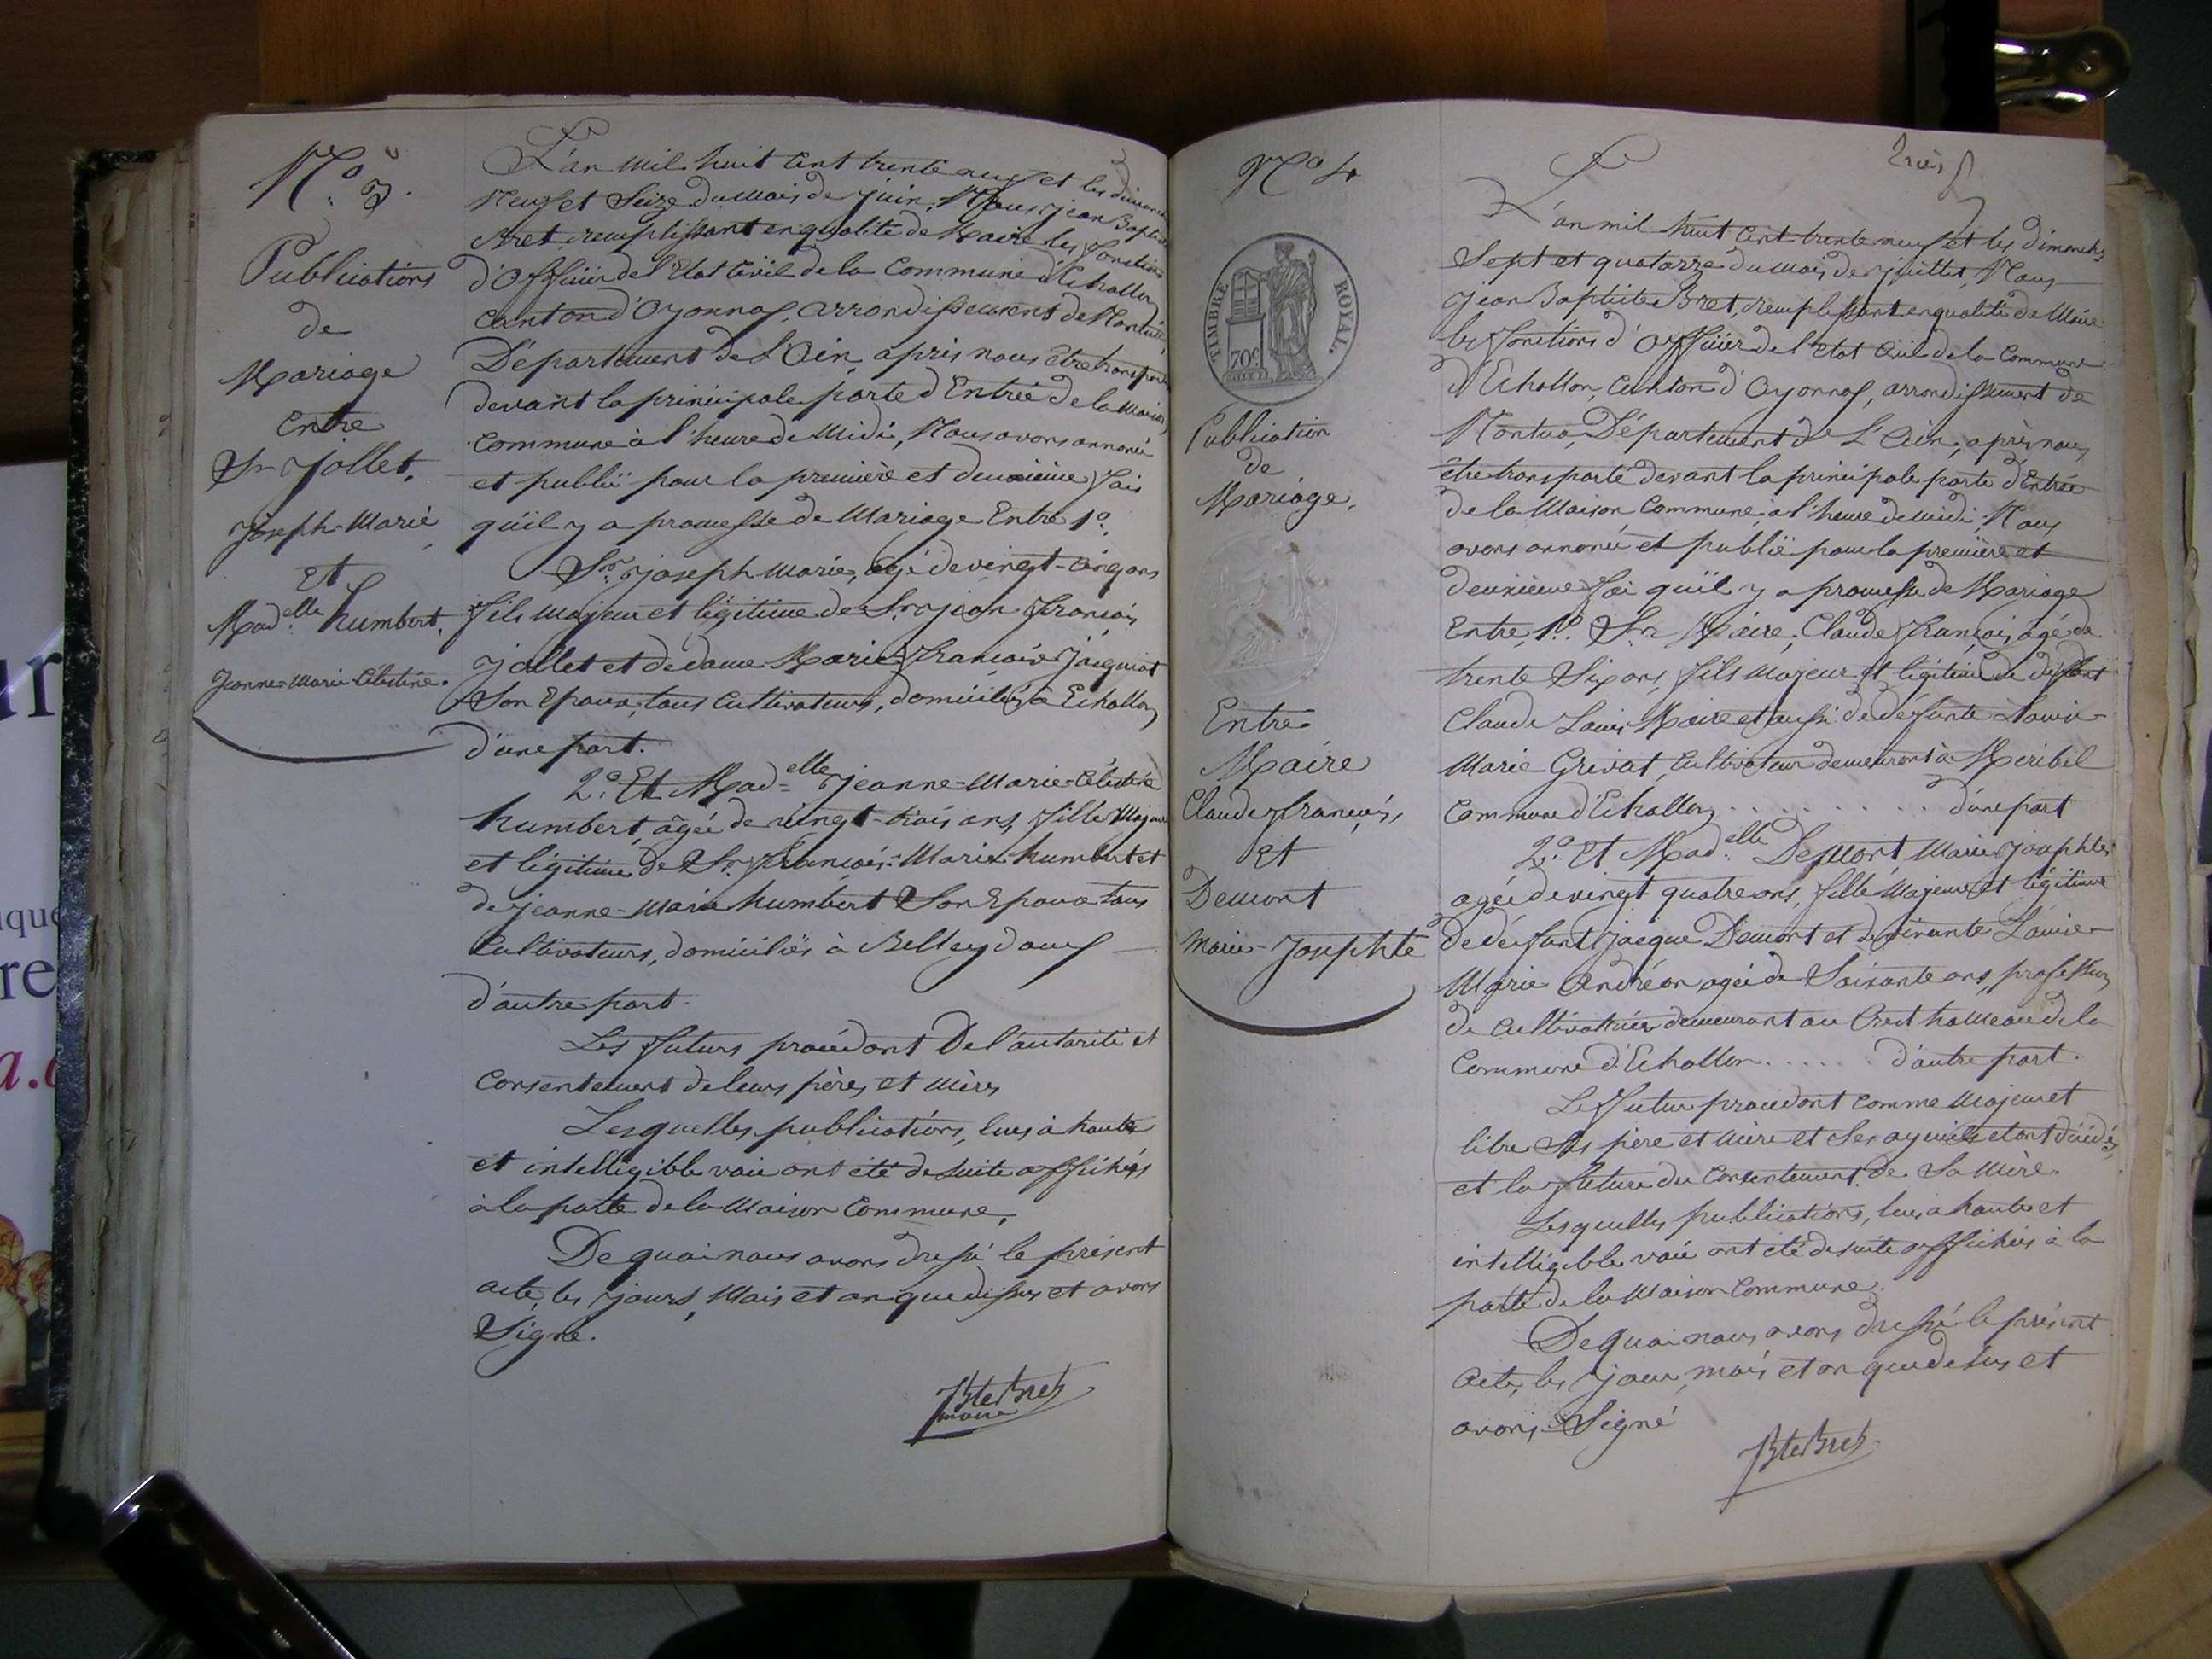 N.° 3.
Publications
de
Mariage
Entre
Sr Jollet,
Joseph-Marie
Et
Mad.elle humbert,
Jeanne-Marie-Célestine.
L'an mil huit cent trente neuf et les dimanches
Neuf et Seize du mois de juin, Nous jean Baptiste
Bret remplissant en qualité de Maire les fonctions
d'Officier de l'Etat Civil de la Commune d'Echallon
Canton d'Oyonnax, arrondissement de Nantua,
Département de L'Ain, après nous être transporté
devant la principale porte d'Entrée de la Maison
Commune à l'heure de Midi, Nous avons annoncé
et publié pour la première et deuxième fois
qu'il y a promesse de Mariage Entre 1.°
Sr. joseph-Marie, âgé de vingt-cinq ans
fils majeur et légitime de Sr. jean françois
jollet et de dame Marie françoise jacquiot
Son Epouse, tous Cultivateurs, domiciliés à Echallon
d'une part.
2.° Et Mad.elle jeanne-Marie-Célestine
humbert, âgée de vingt-trois ans, fille Majeure
et légitime de Sr. françois-Marie humbert et
de jeanne-Marie humbert Son Epouse tous
Cultivateurs, domiciliés à Belleydoux
d'autre part.
Les futurs procédant De l'autorité et
Consentement de leurs pères et mères
Lesquelles publications, lues à haute
et intelligible voie ont été de suite affichées
à la porte de la Maison Commune,
De quoi nous avons dressé le présent
acte, les jours, Mois et an que dessus et avons
Signé.
Bte Bret
maire
N° 4
TIMBRE ROYAL.
70c.
Publication
de
Mariage.
Entre
Maire
Claude françois,
Et
Demont
Marie-Josephte
trois
L'an mil huit cent trente neuf et les dimanches
Sept et quatorze du mois de juillet, Nous
jean Baptiste Bret, remplissant en qualité de Maire
les fonctions d'Officier de l'Etat Civil de la Commune
d'Echallon, Canton d'Oyonnax, arrondissement de
Nantua, Département de L'Ain, après nous
être transporté devant la principale porte d'Entrée
de la Maison Commune, à l'heure de midi, Nous
avons annoncé et publié pour la première et
deuxième foi qu'il y a promesse de Mariage
Entre, 1.° Sr. Maire, Claude françois, âgé de
trente Six ans, fils majeur et légitime de défunt
Claude Louis Maire et aussi de défunte Louise
Marie Grivat, Cultivateur demeurant à Meribel
Commune d'Echallon . . . . . . . . . d'une part
2.° Et Mad.elle Demont Marie josephte
agée de vingt quatre ans, fille Majeure et légitime
de défunt jacque Demont et de vivante Louise
Marie Andréan agée de Soixante ans, profession
de Cultivatrice demeurant au Cret hameau de la
Commune d'Echallon . . . . . . d'autre part.
Le futur procédant comme Majeur et
libre Ses père et mère et Ses ayeuils etant décédés,
et la future du Consentement de Sa mère.
Lesquelles publications, lues a haute et
intelligible voie ont été de suite affichées à la
porte de la Maison Commune.
De quoi nous avons dressé le présent
acte, les jour, mois et an que desus et
avons Signé
Bte Bret